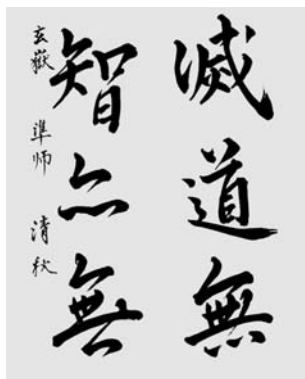 滅道無
智亦無
玄嶽 準师 清秋